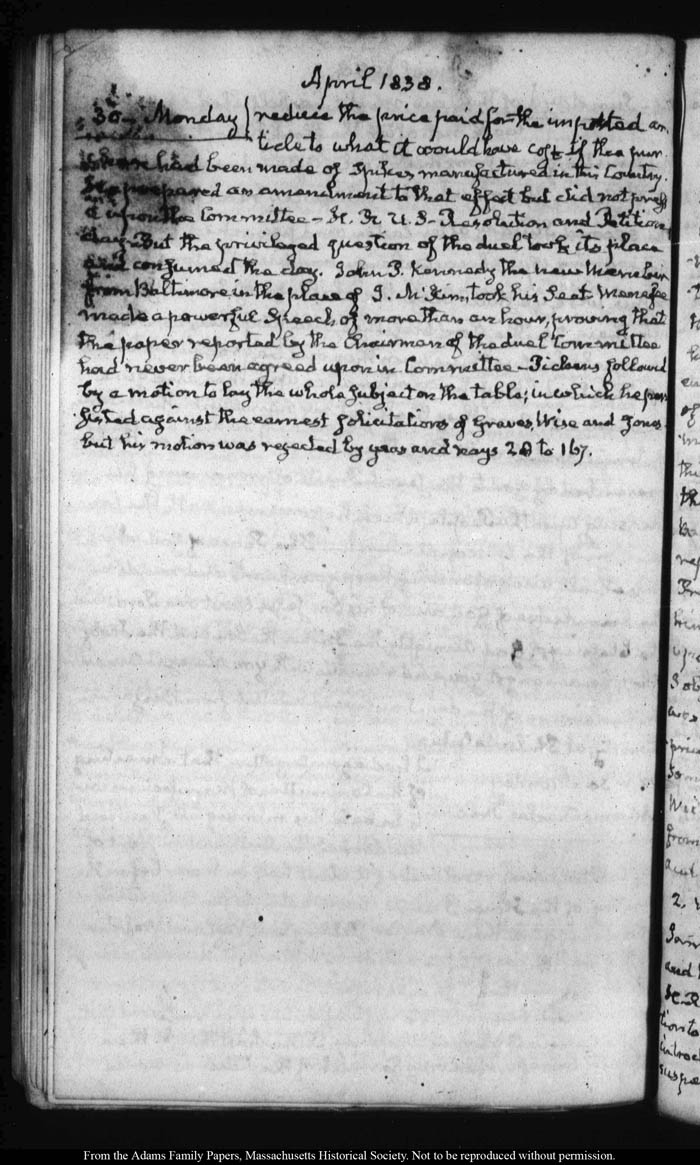 April 1838.
30. Monday } reduce the price paid for the imported ar-
ticle to what it would have cost if the pur-
chase had been made of spikes manufactured in this Country.
He prepared an amendment to that effect but did not press
it upon the Committee — H. R. U. S — Resolution and Petition
day. But the privileged question of the duel took its place
and consumed the day. John P. Kennedy the new Member
from Baltimore in the place of I. McKim, took his Seat. Menefee
made a powerful Speech, of more than an hour, proving that
the paper reported by the Chairman of the duel Committee
had never been agreed upon in Committee — Pickens followed
by a motion to lay the whole subject on the table; in which he per-
sisted against the earnest solicitations of Graves, Wise and Jones
but his motion was rejected by yeas and nays 28 to 167.
From the Adams Family Papers, Massachusetts Historical Society. Not to be reproduced without permission.